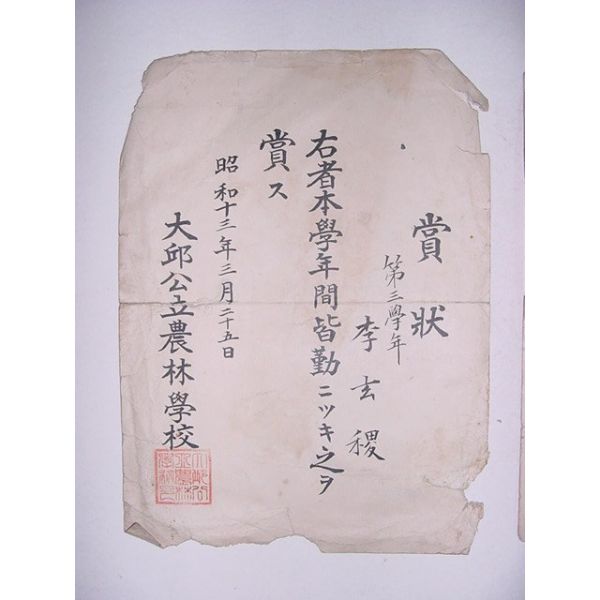 賞狀
第三學年
李玄稷
右者本學年間皆勤ニツキ之ヲ
賞ス
昭和十三年三月二十五日
大邱公立農林學校